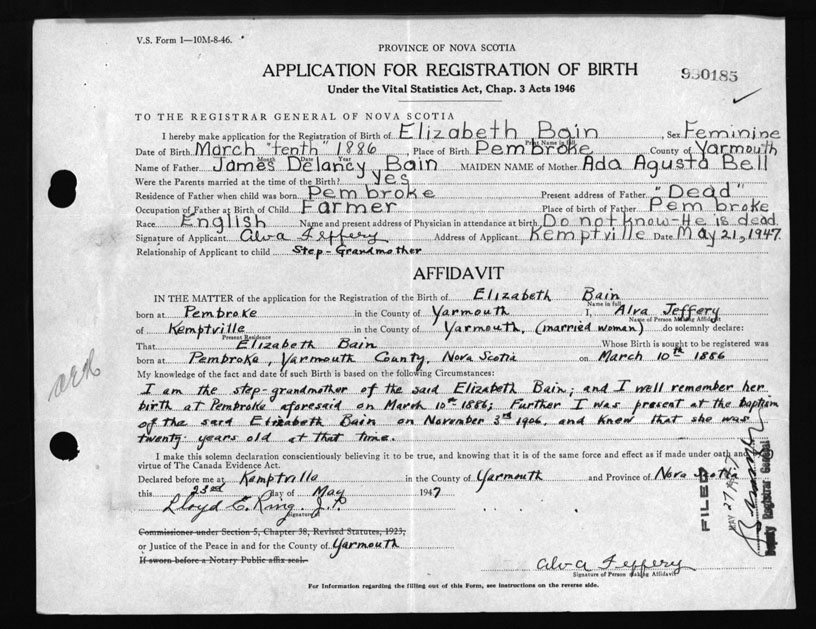 V.S. Form 1—10M-8-46.
PROVINCE OF NOVA SCOTIA
APPLICATION FOR REGISTRATION OF BIRTH
930185
Under the Vital Statistics Act, Chap. 3 Acts 1946
TO THE REGISTRAR GENERAL OF NOVA SCOTIA
I hereby make application for the Registration of Birth of Elizabeth Bain, Sex Feminine
Print Name in full
Date of Birth March "tenth" 1886, Place of Birth Pembroke County of Yarmouth
Month Date Year
Name of Father James Delancy Bain MAIDEN NAME of Mother Ada Agusta Bell
Were the Parents married at the time of the Birth? yes
Residence of Father when child was born Pembroke Present address of Father "Dead"
Occupation of Father at Birth of Child Farmer Place of birth of Father Pembroke
Race English Name and present address of Physician in attendance at birth Do not know-He is dead
Signature of Applicant Alva Jeffery Address of Applicant Kemptville Date May 21, 1947
Relationship of Applicant to child Step-Grandmother
AFFIDAVIT
IN THE MATTER of the application for the Registration of the Birth of Elizabeth Bain
Name in full
born at Pembroke in the County of Yarmouth I, Alva Jeffery
Name of Person Making Affidavit
of Kemptville in the County of Yarmouth, (married woman) do solemnly declare:
Present Residence
That Elizabeth Bain Whose Birth is sought to be registered was
born at Pembroke, Yarmouth County, Nova Scotia on March 10th 1886
My knowledge of the fact and date of such Birth is based on the following Circumstances:
I am the step-grandmother of the said Elizabeth Bain; and I well remember her
birth at Pembroke aforesaid on March 10th 1886; Further I was present at the baptism
of the said Elizabeth Bain on November 3rd 1906, and know that she was
twenty years old at that time.
I make this solemn declaration conscientiously believing it to be true, and knowing that it is of the same force and effect as if made under oath and by
virtue of The Canada Evidence Act.
Declared before me at Kemptville in the County of Yarmouth and Province of Nova Scotia
this 23rd day of May 1947
Lloyd E. Ring J.P.
Signature of
Commissioner under Section 5, Chapter 38, Revised Statutes, 1923,
or Justice of the Peace in and for the County of Yarmouth
If sworn before a Notary Public affix seal.
Alva Jeffery
Signature of Person Making Affidavit
For Information regarding the filling out of this Form, see instructions on the reverse side.
FILED
MAY 27 1947
Deputy Registrar General